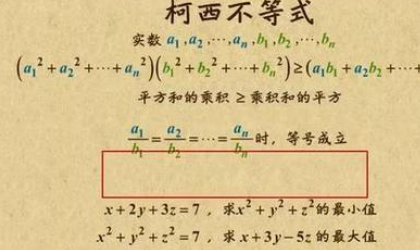 柯西不等式
实数 a₁,a₂,⋯,aₙ,b₁,b₂,⋯,bₙ
(a₁²+a₂²+⋯+aₙ²)(b₁²+b₂²+⋯+bₙ²)≥(a₁b₁+a₂b₂+⋯+
平方和的乘积 ≥ 乘积和的平方
a₁/b₁=a₂/b₂=⋯=aₙ/bₙ时，等号成立
x+2y+3z=7，求x²+y²+z²的最小值
x²+y²+z²=7，求x+3y-5z的最大值